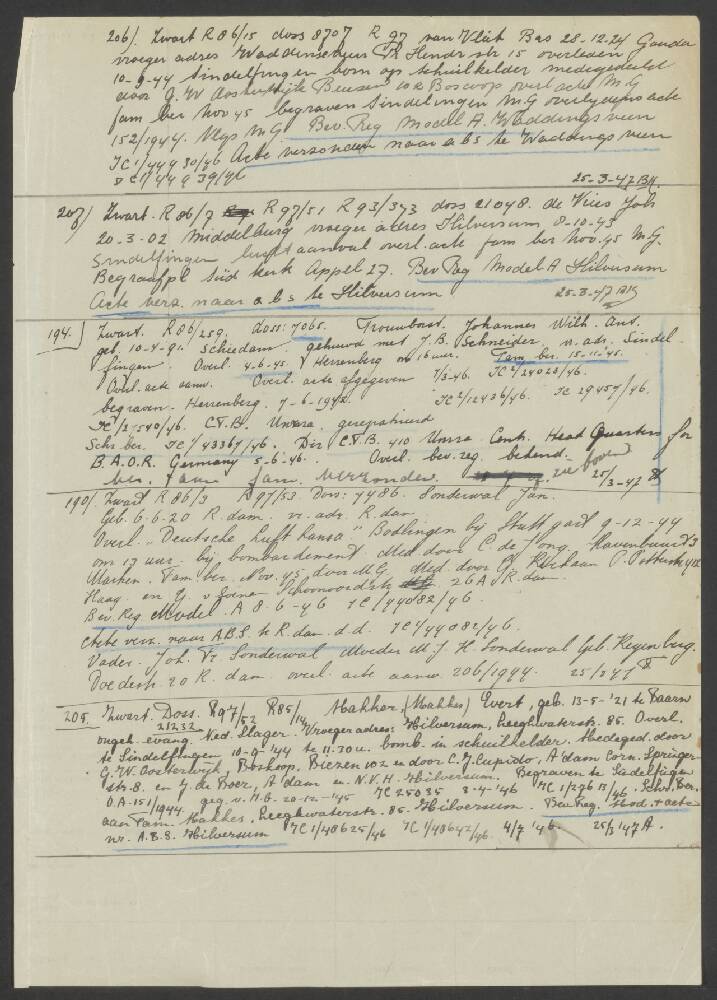 206/ Zwart R 86/15 doss 8707 R 97 van Vliet Bas 28-12-24 Gouda
vroeger adres Waddinxveen Th Hendr str 15 overleden
10-9-44 Sindelfingen bom op schuilkelder medegedeeld
door G. W Oosterwijk Biezen 102 Boscoop overl acte M.G
fam ber Nov 45 begraven Sindelingen M.G overlydens acte
152/1944. M.G Bev. Reg Model A. Waddingsveen
JC 1/44930/46 Acte verzonden naar a b s te Waddings veen
JC 1/44939/46
25-3-47 BM.
207/ Zwart. R 86/7 R 97/51 R 93/373 doss 21048. de Vries Joh
20-3-02 Middelburg vroeger adres Hilversum 8-10-43
Sindelfingen luchtaanval overl. acte fam ber Nov. 45 M.G.
Begraafpl Süd Kerk Appel 27. Bev Reg Model A Hilversum
Acte verz. naar a b s te Hilversum
25-3-47
194/ Zwart. R 86/259. doss: 7065. Trombout. Johannes Wilh. Ant.
geb. 10-4-91. Schiedam. gehuwd met J. B. Schneider. v. adr. Sindel
fingen. Overl. 4-6-45. Herrenberg om 16 uur. Fam. ber. 15-11-45.
Overl. acte aanw. Overl. acte afgegeven 7/3-46. JC 2/24028/46.
begraven. Herrenberg. 7-6-1945. JC 2/12436/46. JC 29457/46.
JC/2-540/46. C.T.B. Unrra. gerepatrieerd
Schr. ber. JC/43367/46. Dir C.T.B. 410 Unrra Cent. Head Quarters for
B.A.O.R. Germany 5-6-46. Overl. bev. reg. bekend.
ber. aan fam. verzonden. zie boven 25/3-47
190/. Zwart R 86/3 R 97/53 Doss: 7486. Sonderwal Jan.
Geb. 6-6-20 R.dam. vr. adr. R.dan
Overl. "Deutsche Luft hansa" Bödlingen bij Stuttgart 9-12-44
om 13 uur. bij bombardement. Med. door C. de Jong. Havenbuurt 3
Marken. Fam ber. Nov. 45 door M.G. Med. door P. Potterstr 412
Haag. en G. v Schoonoordstr 26A R.dam.
Bev. Reg Model. A 8-6-46 JC 1/44082/46.
Acte verz. naar A.B.S. te R.dam. d.d. JC 1/44082/46.
Vader. Joh. Fr Sonderwal Moeder M. J. H. Sonderwal geb. Regenberg.
Doedesstr. 20 R. dam. overl. acte aanw. 206/1944. 25/3 47
205. Zwart. Doss. 21232 R 97/52 R 85/14 Hakker, (Hakkes) Evert, geb. 13-5-'21 te Baarn
ongeh. evang. Ned. Slager. Vroeger adres: Hilversum, Leeghwaterstr. 85. Overl.
te Sindelfingen 10-9-'44 te 11.30 u. bomb. in schuilkelder. Medeged. door
G. W. Oosterwijk, Boskoop. Biezen 102 en door C. J. Cupido, A'dam Corn. Springer
str. 8. en J. de Boer, A'dam en N.V.H. Hilversum. Begraven te Sindelfingen
O.A. 151/1944. geg. v. M.G. 20-12-'45 JC 25035 3-4-'46 JC 1/27613/46. Schr. Ber.
aan Fam. Hakkes, Leeghwaterstr. 85. Hilversum. Bev. Reg. Mod. + acte
nr. A.B.S. Hilversum JC 1/48625/46 JC 1/48642/46 4/7 '46. 25/3 '47 A.